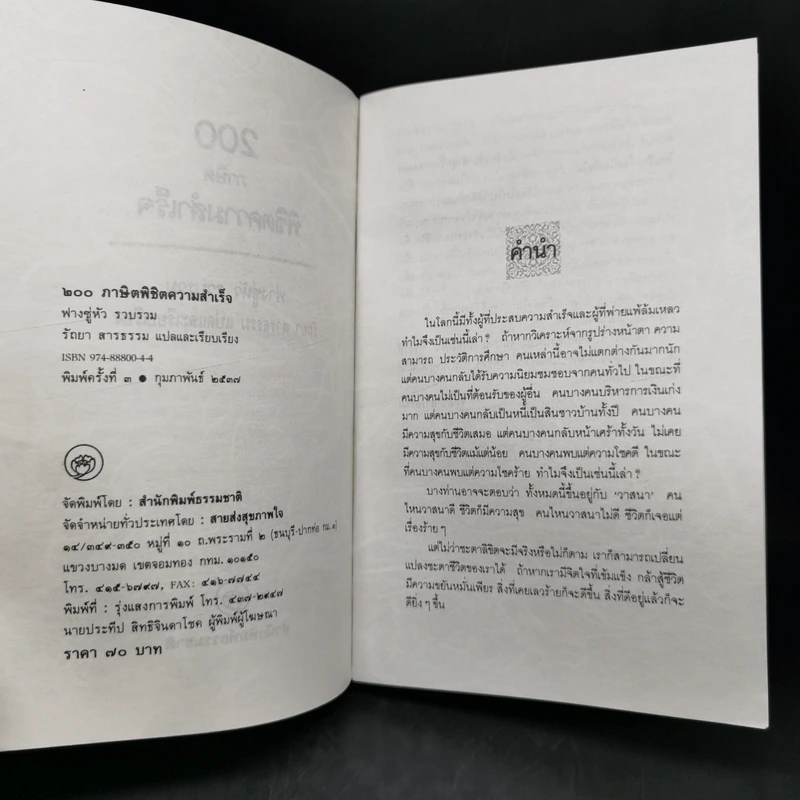 ๒๐๐ ภาษิตพิชิตความสำเร็จ
ฟางซู่หัว รวบรวม
รัถยา สารธรรม แปลและเรียบเรียง
ISBN 974-88800-4-4
พิมพ์ครั้งที่ ๓ ● กุมภาพันธ์ ๒๕๓๗
จัดพิมพ์โดย : สำนักพิมพ์ธรรมชาติ
จัดจำหน่ายทั่วประเทศโดย : สายส่งสุขภาพใจ
๑๔/๓๔๙-๓๕๐ หมู่ที่ ๑๐ ถ.พระรามที่ ๒ (ธนบุรี-ปากท่อ กม.๑)
แขวงบางมด เขตจอมทอง กทม. ๑๐๑๕๐
โทร. ๔๑๕-๖๗๙๗, FAX: ๔๑๖-๗๗๔๔
พิมพ์ที่ : รุ่งแสงการพิมพ์ โทร. ๔๓๗-๒๙๔๗
นายประทีป สิทธิจินดาโชค ผู้พิมพ์ผู้โฆษณา
ราคา ๗๐ บาท
คำนำ
ในโลกนี้มีทั้งผู้ที่ประสบความสำเร็จและผู้ที่พ่ายแพ้ล้มเหลว
ทำไมจึงเป็นเช่นนี้เล่า? ถ้าหากวิเคราะห์จากรูปร่างหน้าตา ความ
สามารถ ประวัติการศึกษา คนเหล่านี้อาจไม่แตกต่างกันมากนัก
แต่คนบางคนกลับได้รับความนิยมชมชอบจากคนทั่วไป ในขณะที่
คนบางคนไม่เป็นที่ต้อนรับของผู้อื่น คนบางคนบริหารการเงินเก่ง
มาก แต่คนบางคนกลับเป็นหนี้เป็นสินชาวบ้านทั้งปี คนบางคน
มีความสุขกับชีวิตเสมอ แต่คนบางคนกลับหน้าเศร้าทั้งวัน ไม่เคย
มีความสุขกับชีวิตแม้แต่น้อย คนบางคนพบแต่ความโชคดี ในขณะ
ที่คนบางคนพบแต่ความโชคร้าย ทำไมจึงเป็นเช่นนี้เล่า?
บางท่านอาจจะตอบว่า ทั้งหมดนี้ขึ้นอยู่กับ 'วาสนา' คน
ไหนวาสนาดี ชีวิตก็มีความสุข คนไหนวาสนาไม่ดี ชีวิตก็เจอแต่
เรื่องร้าย ๆ
แต่ไม่ว่าชะตาลิขิตจะมีจริงหรือไม่ก็ตาม เราก็สามารถเปลี่ยน
แปลงชะตาชีวิตของเราได้ ถ้าหากเรามีจิตใจที่เข้มแข็ง กล้าสู้ชีวิต
มีความขยันหมั่นเพียร สิ่งที่เคยเลวร้ายก็จะดีขึ้น สิ่งที่ดีอยู่แล้วก็จะ
ดียิ่ง ๆ ขึ้น